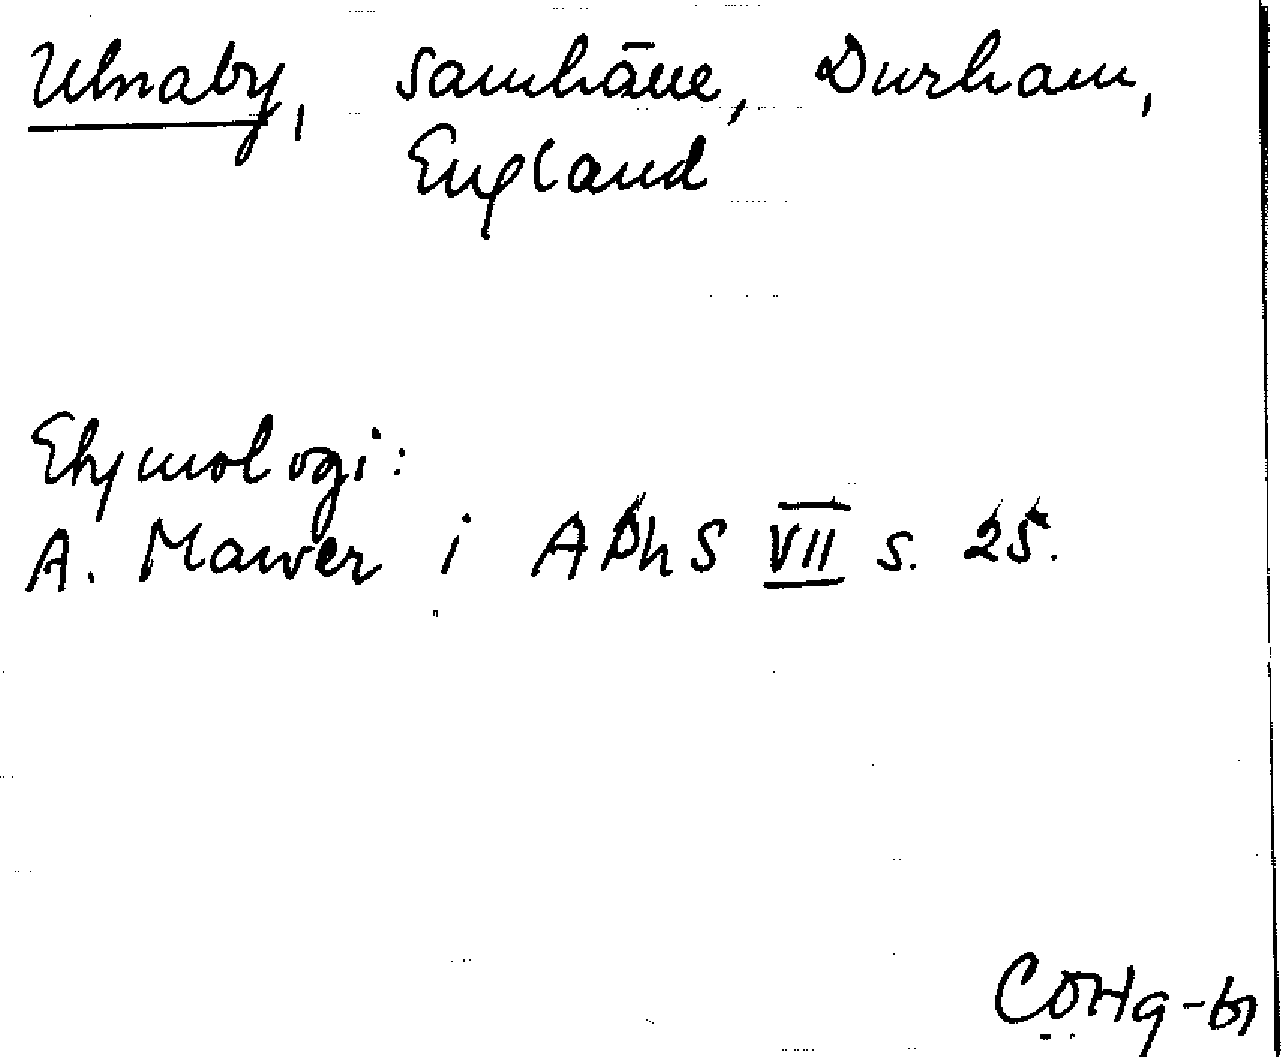 Ulnaby, samhäve, Durham,
England
Etymologi:
A. Mawer i APhS VII s. 25.